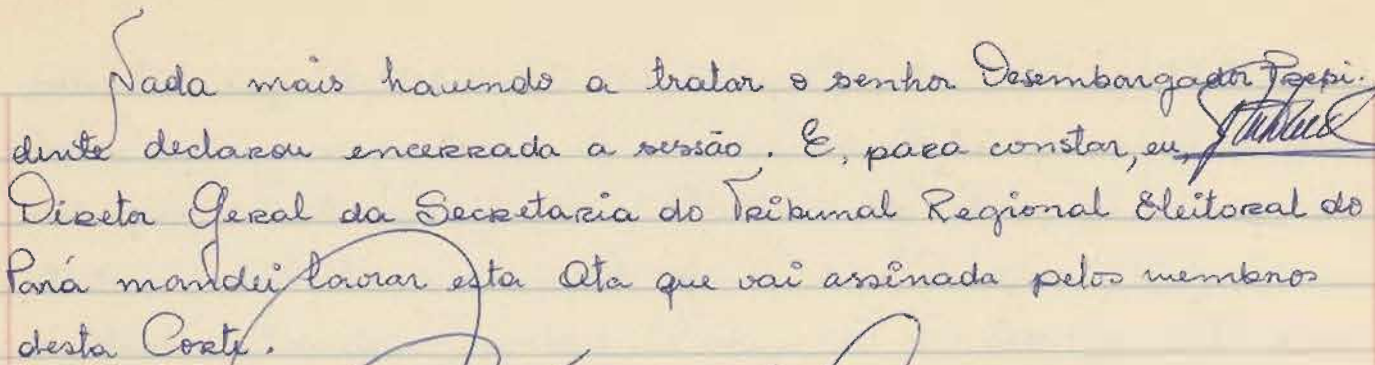 Nada mais havendo a tratar o senhor Desembargador Presi-
dente declarou encerrada a sessão. E, para constar, eu,
Diretor Geral da Secretaria do Tribunal Regional Eleitoral do
Pará mandei lavrar esta Ata que vai assinada pelos membros
desta Corte.